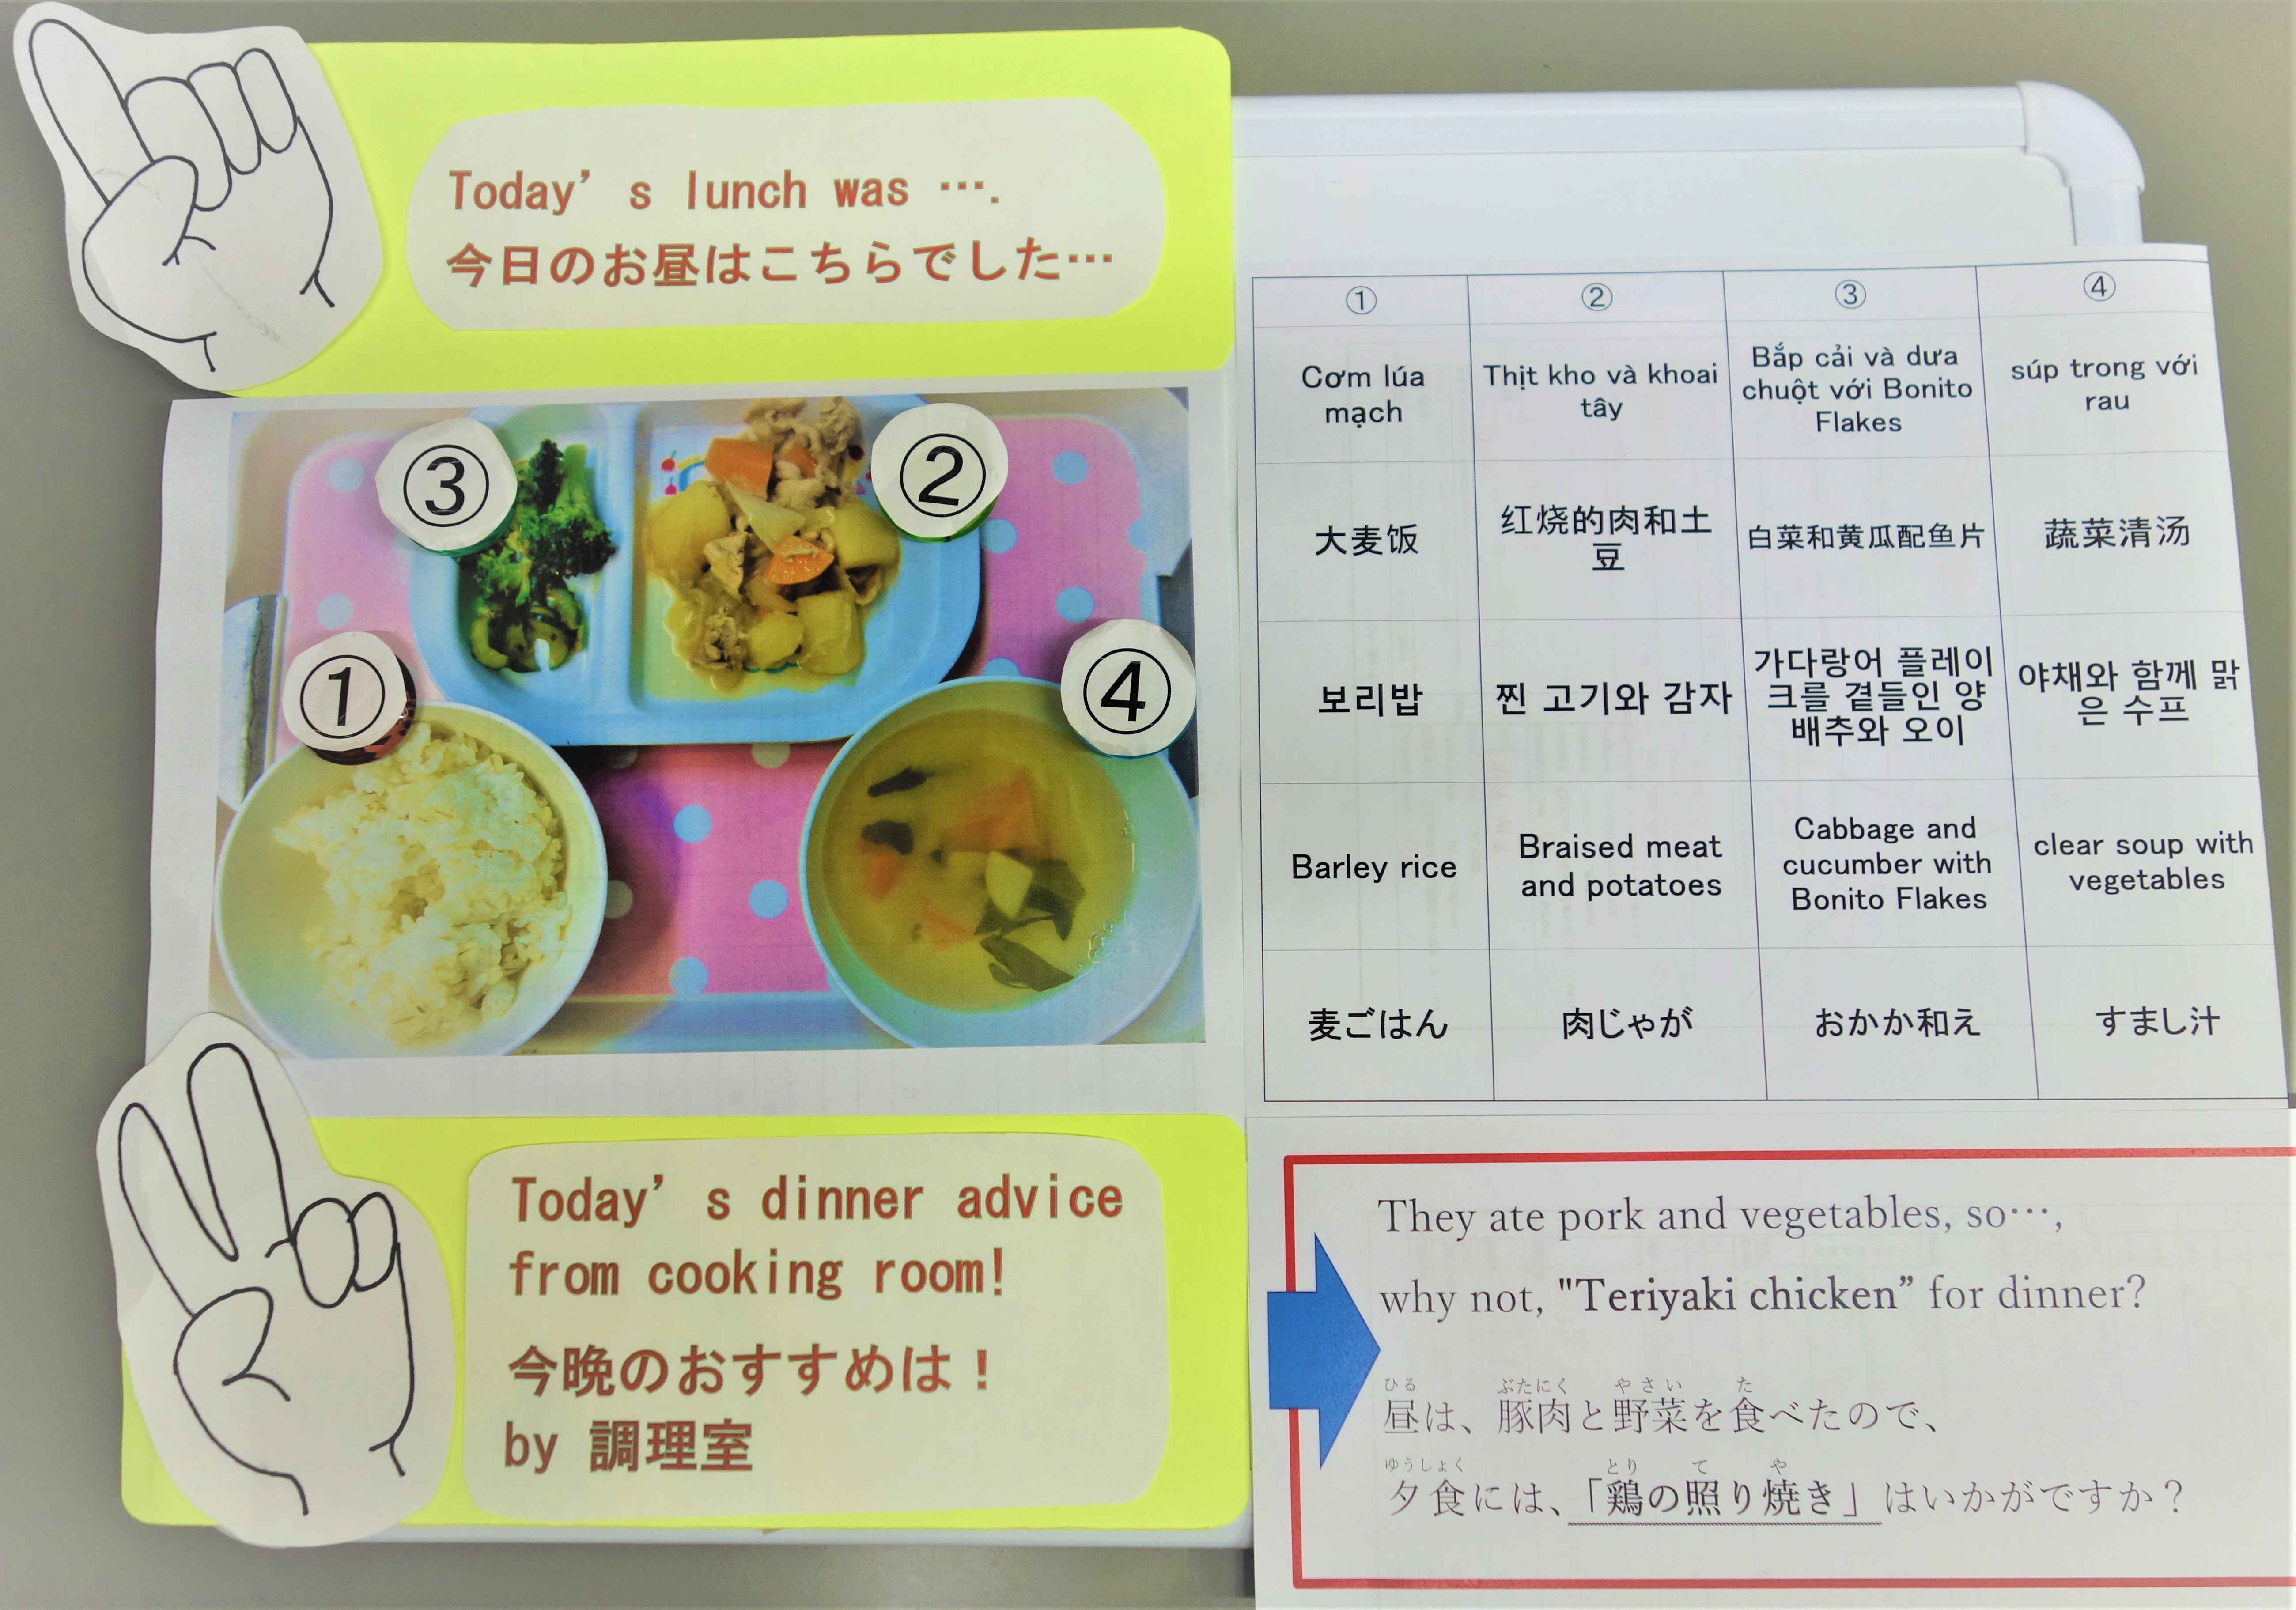 Today's lunch was ….
今日のお昼はこちらでした…
③
②
①
④
① ② ③ ④
Cơm lúa
mạch
Thịt kho và khoai
tây
Bắp cải và dưa
chuột với Bonito
Flakes
súp trong với
rau
大麦饭
红烧的肉和土
豆
白菜和黄瓜配鱼片
蔬菜清汤
보리밥
찐 고기와 감자
가다랑어 플레이
크를 곁들인 양
배추와 오이
야채와 함께 맑
은 수프
Barley rice
Braised meat
and potatoes
Cabbage and
cucumber with
Bonito Flakes
clear soup with
vegetables
麦ごはん
肉じゃが
おかか和え
すまし汁
Today's dinner advice
from cooking room!
今晩のおすすめは！
by 調理室
They ate pork and vegetables, so…,
why not, "Teriyaki chicken" for dinner?
ひる ぶたにく やさい た
昼は、豚肉と野菜を食べたので、
ゆうしょく とり て や
夕食には、「鶏の照り焼き」はいかがですか？